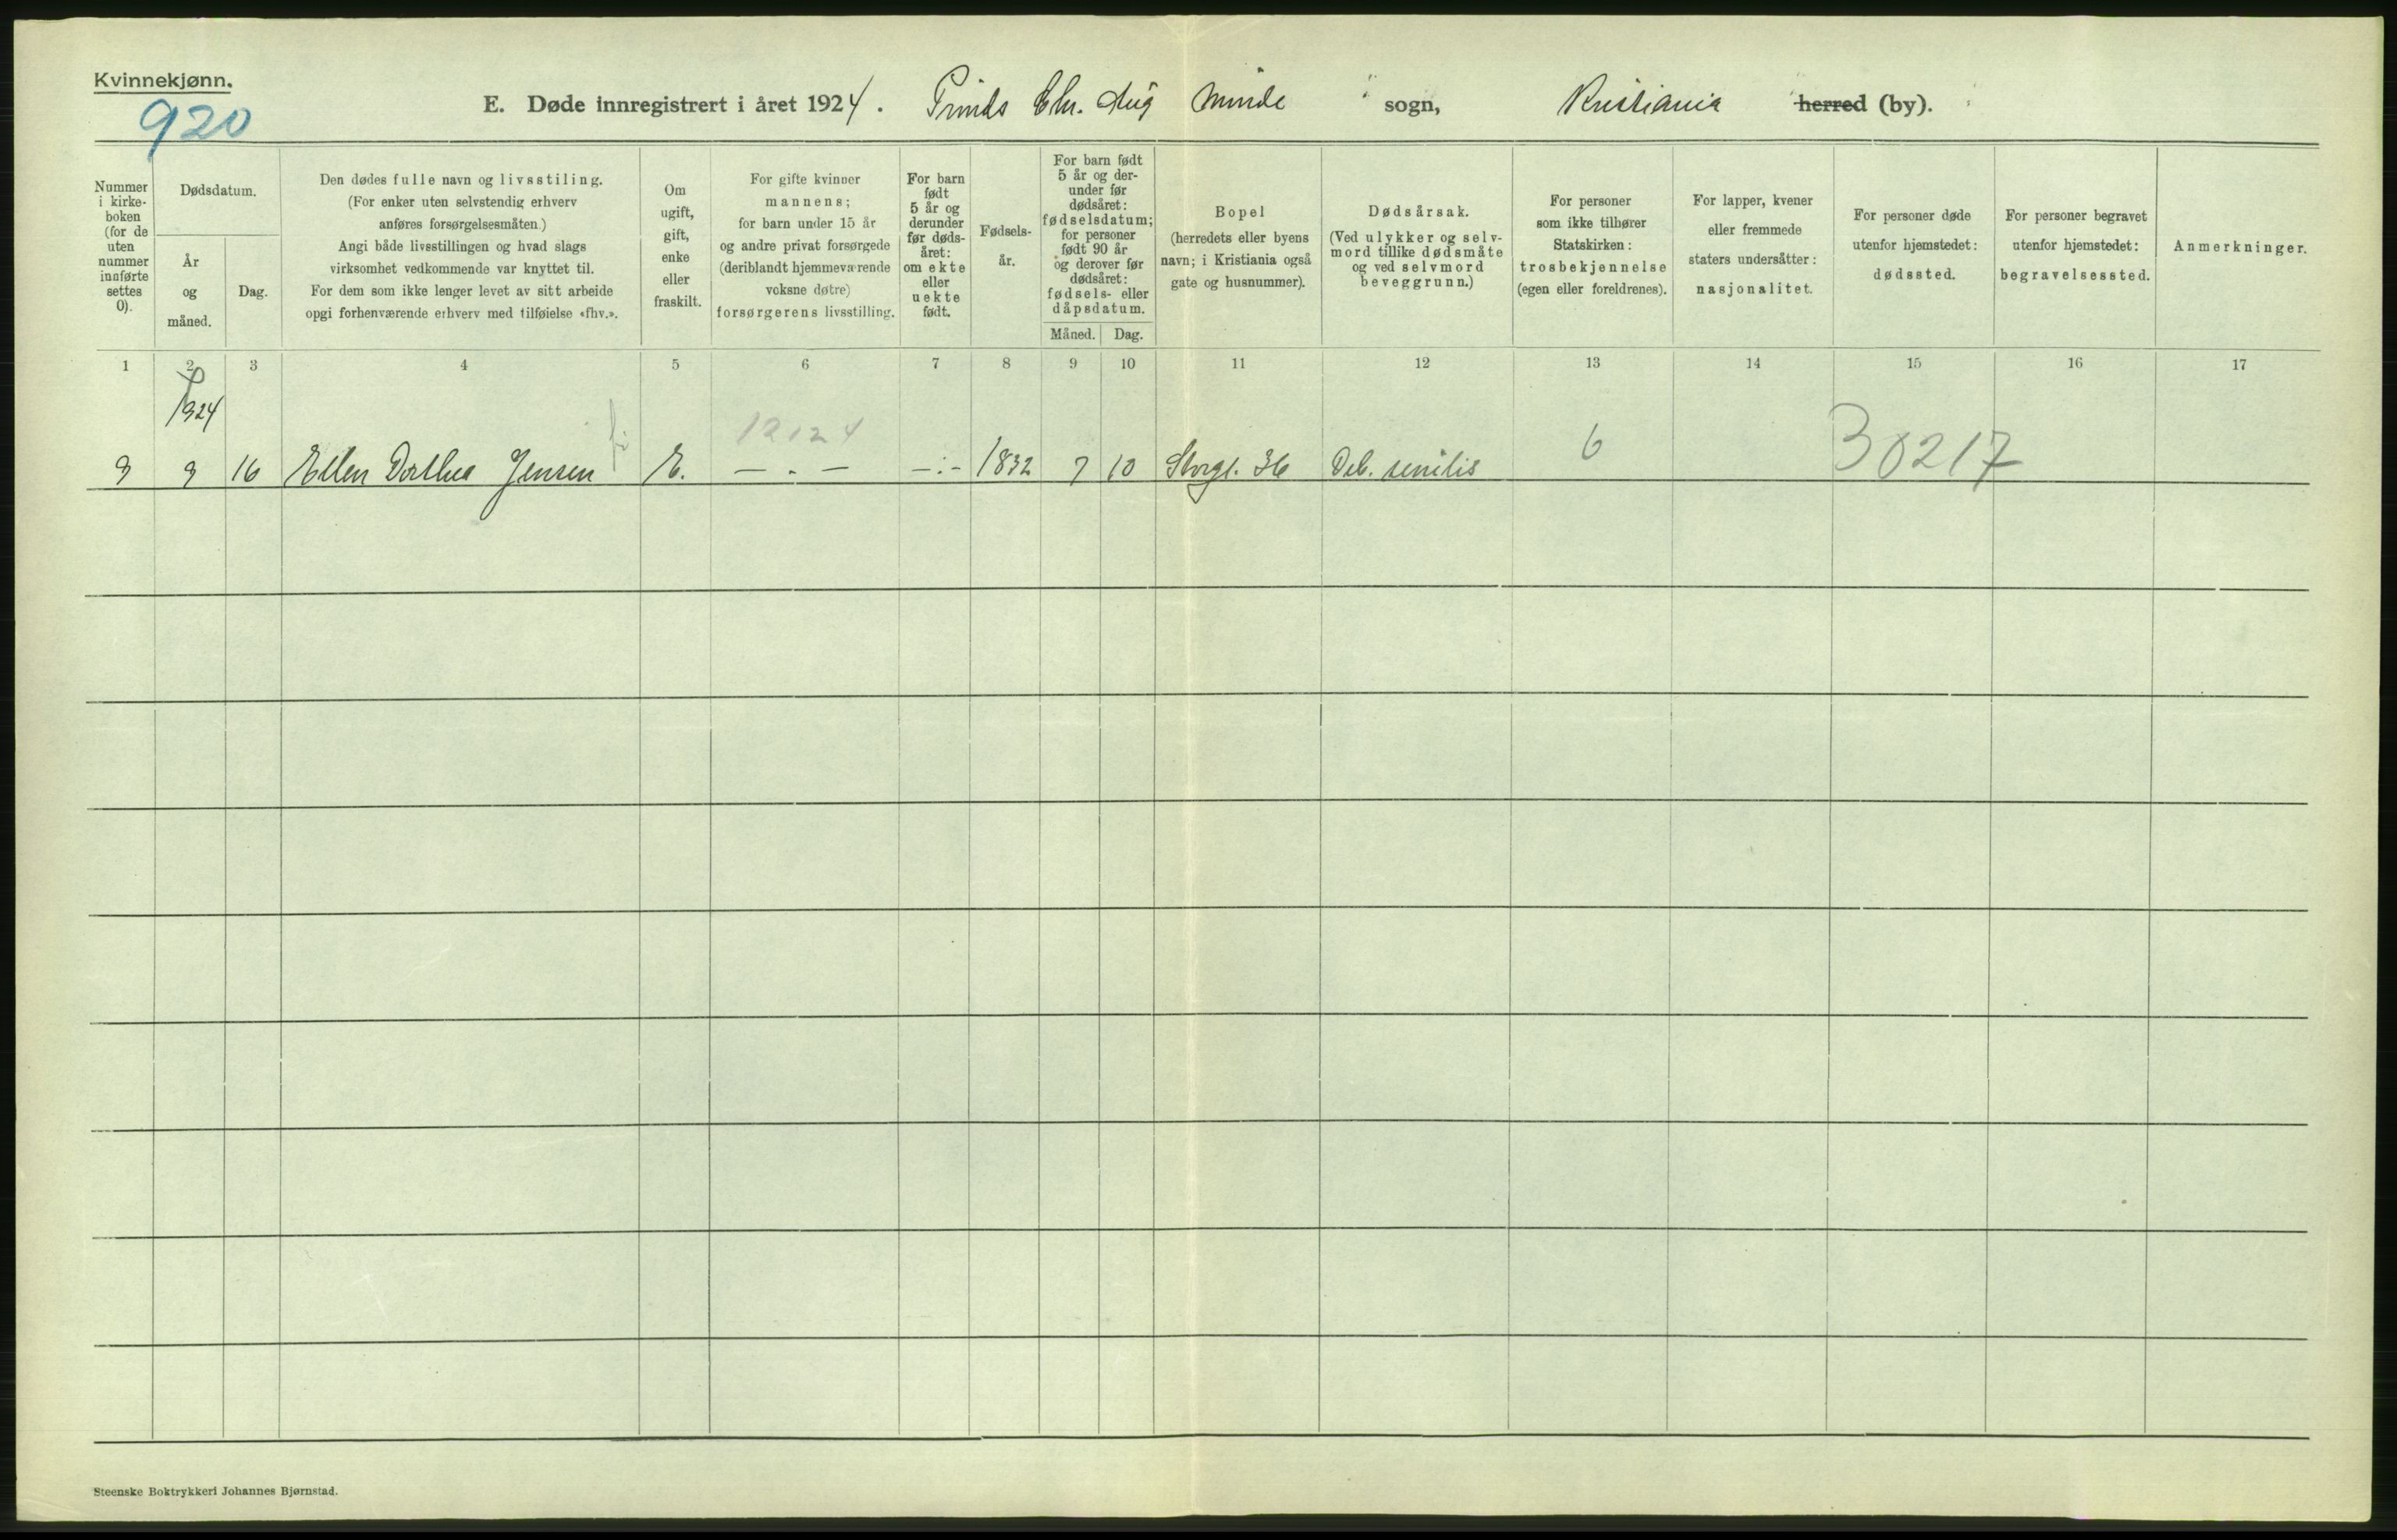 Kvinnekjønn.
920
E. Døde innregistrert i året 1924. Prinds Chr. Aug Minde sogn, Kristiania herred (by).
Nummer
i kirke-
boken
(for de
uten
nummer
innførte
settes
0).
Dødsdatum.
År
og
måned.
Dag.
Den dødes fulle navn og livsstiling.
(For enker uten selvstendig erhverv
anføres forsørgelsesmåten.)
Angi både livsstillingen og hvad slags
virksomhet vedkommende var knyttet til.
For dem som ikke lenger levet av sitt arbeide
opgi forhenværende erhverv med tilføielse «fhv.».
Om
ugift,
gift,
enke
eller
fraskilt.
For gifte kvinner
mannens;
for barn under 15 år
og andre privat forsørgede
(deriblandt hjemmeværende
voksne døtre)
forsørgerens livsstilling.
For barn
født
5 år og
derunder
før døds-
året:
om ekte
eller
uekte
født.
Fødsels-
år.
For barn født
5 år og der-
under før
dødsåret:
fødselsdatum;
for personer
født 90 år
og derover før
dødsåret:
fødsels- eller
dåpsdatum.
Måned. Dag.
Bopel
(herredets eller byens
navn; i Kristiania også
gate og husnummer).
Dødsårsak.
(Ved ulykker og selv-
mord tillike dødsmåte
og ved selvmord
beveggrunn.)
For personer
som ikke tilhører
Statskirken:
trosbekjennelse
(egen eller foreldrenes).
For lapper, kvener
eller fremmede
staters undersåtter:
nasjonalitet.
For personer døde
utenfor hjemstedet:
dødssted.
For personer begravet
utenfor hjemstedet:
begravelsessted.
Anmerkninger.
1 2 3 4 5 6 7 8 9 10 11 12 13 14 15 16 17
1924
12124
3 3 16 Ellen Dorthea Jensen E. — . — —:— 1832 7 10 Storgt. 36 Deb. senilis 6 30217
Steenske Boktrykkeri Johannes Bjørnstad.